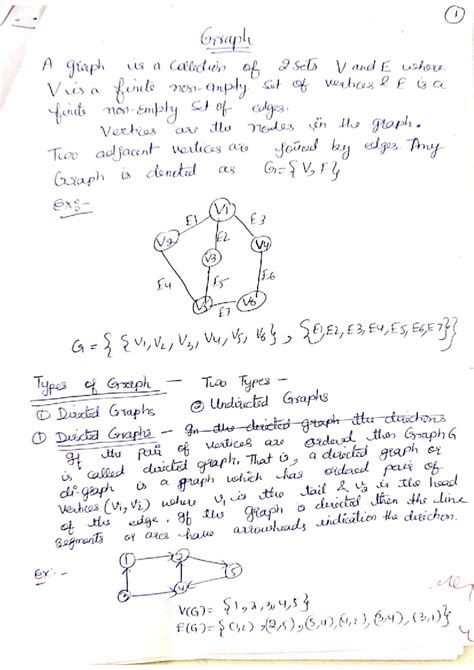 1
Graph
A graph is a collection of 2 sets V and E where
V is a finite non-empty set of vertices & E is a
finite non-empty set of edges.
Vertices are the nodes in the graph.
Two adjacent vertices are joined by edges. Any
Graph is denoted as G={V,E}
Ex:-
V1
E1 E2 E3
V2 V3 V4
E4 E5 E6
V5 E7 V6
G = { {V1, V2, V3, V4, V5, V6}, {E1,E2,E3,E4,E5,E6,E7}}
Types of Graph - Two Types -
① Directed Graphs ② Undirected Graphs
① Directed Graphs - In the directed graph the directions
If the pair of vertices are ordered then Graph G
is called directed graph. That is, a directed graph or
di-graph is a graph which has ordered pair of
vertices (V1, V2) where V1 is the tail & V2 is the head
of the edge. If the graph is directed then the line
segments or arcs have arrowheads indication the direction.
Ex:-
1 2
4 5
V(G) = {1,2,3,4,5}
E(G) = {(1,2), (2,5), (5,4), (4,2), (3,4), (3,1)}